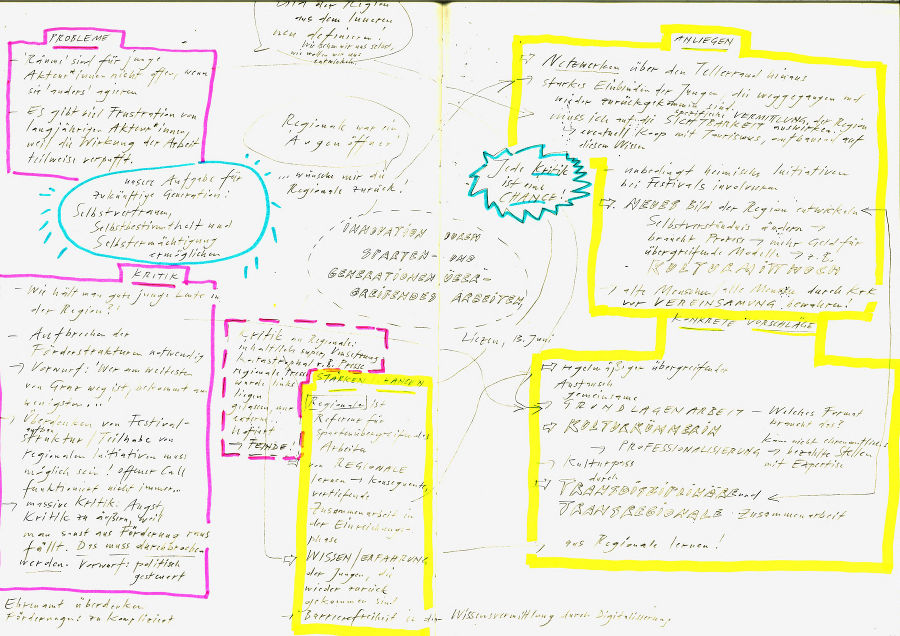 Bild der Region
aus dem Inneren
neu definieren!
wie sehen wir uns selbst,
wie wollen wir uns
entwickeln.
PROBLEME
- 'Räume' sind für junge
Akteur*innen nicht offen, wenn
sie 'anders' agieren
- Es gibt viel Frustration von
langjährigen Akteur*innen,
weil die Wirkung der Arbeit
teilweise verpufft.
unsere Aufgabe für
zukünftige Generation:
Selbstvertrauen,
Selbstbestimmtheit und
Selbstermächtigung
ermöglichen
KRITIK
- Wie hält man gute junge Leute in
der Region?!
- Aufbrechen der
Förderstrukturen notwendig
→ Vorwurf: Wer am weitesten
von Graz weg ist, bekommt am
wenigsten...!
→ Überdenken von Festival-
struktur/Teilhabe von
regionalen Initiativen muss
möglich sein! offener Call
funktioniert nicht immer...
→ massive Kritik. Angst,
Kritik zu äußern, weil
man sonst aus Förderung raus
fällt. Das muss durchbrochen
werden. Vorwurf: politisch
gesteuert
Ehrenamt überdenken
Förderungen zu kompliziert
Regionale war ein
Augenöffner
... wünsche mir die
Regionale zurück!
INNOVATION DURCH
SPARTEN- UND
GENERATIONEN ÜBER-
GREIFENDES ARBEITEN
Liezen, 13. Juni
Kritik an Regionale:
inhaltlich super, Umsetzung
katastrophal z.B. Presse
regionale Presse
wurde links
liegen
gelassen, nur
extern
hofiert
→ FEHLER!
STÄRKEN / CHANCEN
Regionale ist
Referenz für
spartenübergreifendes
Arbeiten
von REGIONALE
lernen → konsequente,
vertiefende
Zusammenarbeit in
der Einreichungs-
phase
⇨ WISSEN/ERFAHRUNG
der Jungen, die
wieder zurück
gekommen sind
→ Barrierefreiheit in der Wissensvermittlung durch Digitalisierung
Jede Kritik
ist eine
CHANCE!
ANLIEGEN
⇨ Netzwerken über den Tellerrand hinaus
starkes Einbinden der Jungen, die weggegangen und
wieder zurückgekommen sind.
VERMITTLUNG, der Region
muss sich auf die SICHTBARKEIT auswirken.
↳ eventuell Koop mit Tourismus, aufbauend auf
diesem Wissen
- unbedingt heimische Initiativen
bei Festivals involvieren
⇨ NEUES Bild der Region entwickeln
Selbstverständnis ändern →
braucht Prozess → mehr Geld für
übergreifende Modelle → z.B.
KULTURMITTWOCH
→ alte Menschen, alle Menschen durch K+K
vor VEREINSAMUNG bewahren!
KONKRETE VORSCHLÄGE
⇨ regelmäßigen übergreifende
Austausch
gemeinsame
⇨ GRUNDLAGENARBEIT - Welches Format
braucht das?
⇨ KULTURKÜMMERIN
kann nicht ehrenamtlich sein
→ PROFESSIONALISIERUNG → bezahlte Stellen
mit Expertise
→ Kulturpass
durch
⇨ TRANSDISZIPLINÄRE und
TRANSREGIONALE Zusammenarbeit
aus Regionale lernen!